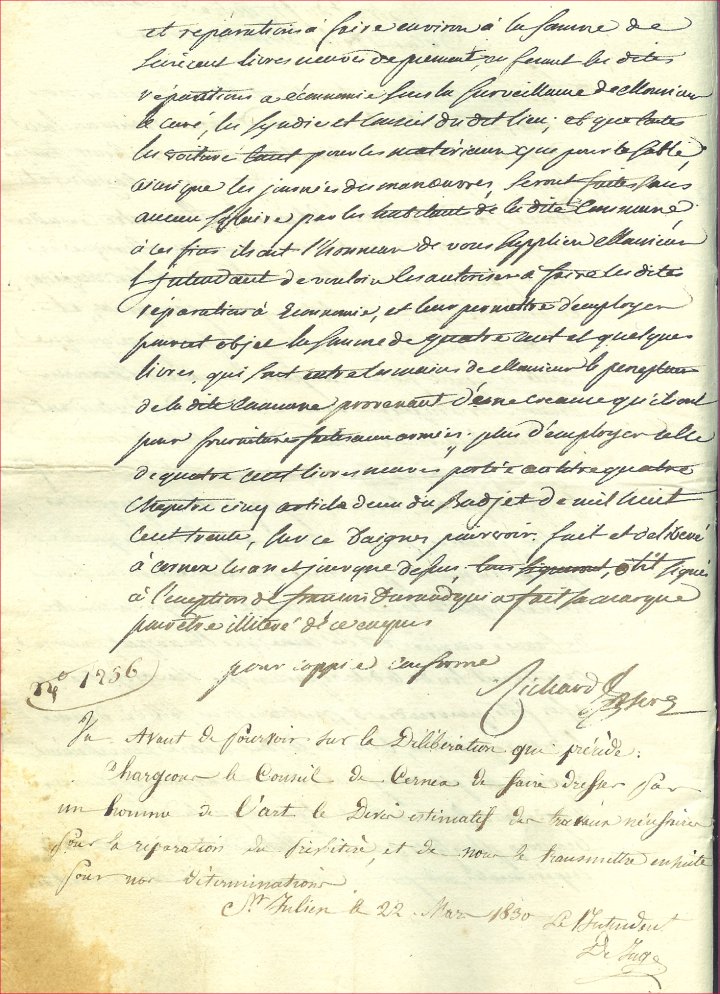 et réparations à faire environ à la somme de
livres neuves de piemont, en fesant les dites
réparations a économie sous la surveillance de Monsieur
le curé, les syndic et conseil du dit lieu; et que toutes
les voiture tant pour les matériaux que pour le sable,
ainsi que les journées des manœuvres, seront faites sans
aucun salaire par les habitant de la dite Commune.
à ces fins ils ont l'honneur de vous supplier Monsieur
l'Intendant de vouloir les autoriser à faire les dites
réparations à Economie, et leur permettre d'employer
pour cet objet la somme de quatre cent et quelques
livres, qui sont entre les mains de Monsieur le percepteur
de la dite commune provenant d'une creance qu'ils ont
pour fournitures faites aux armées; plus d'employer celle
de quatre cent livres neuves portée au titre quatre
Chapitre cinq article deux du Budjet de mil huit
cent trente, sur ce Daignez pourvoir. fait et délibéré
à cernex les an et jour que dessus, tous signés
à l'exception de francois Durand qui a fait sa marque
pour être illiteré de ce enquis
pour coppie conforme
n° 1256 Richard
Vu Avant de pourvoir sur la Délibération qui précède.
Chargeons le Conseil de Cernex de faire dresser par
un homme de l'art le Devis estimatif des travaux nécessaires
pour la réparation du presbitère, et de nous le transmettre ensuite
pour nos déterminations.
St Julien le 22 Mar 1830 Le Intendent
De